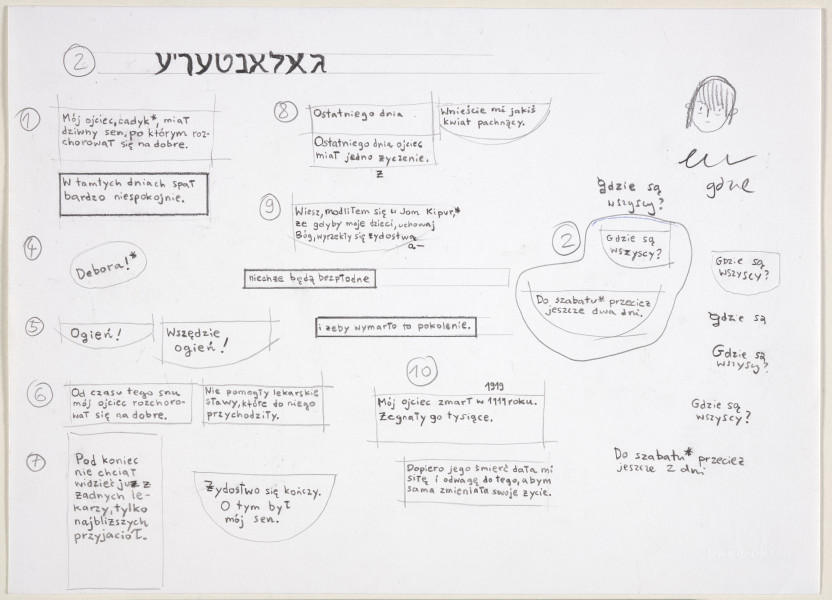 2
גאלאנטעריע
1
Mój ojciec, cadyk*, miał
dziwny sen, po którym roz-
chorował się na dobre.
W tamtych dniach spał
bardzo niespokojnie.
4
Debora!*
5
Ogień!
Wszędzie
ogień!
6
Od czasu tego snu
mój ojciec rozchoro-
wał się na dobre.
Nie pomogły lekarskie
sławy, które do niego
przychodziły.
7
Pod koniec
nie chciał
widzieć już z
żadnych le-
karzy, tylko
najbliższych
przyjaciół.
Żydostwo się kończy.
O tym był
mój sen.
8
Ostatniego dnia
Wnieście mi jakiś
kwiat pachnący.
Ostatniego dnia ojciec
miał jedno życzenie.
Z
9
Wiesz, modliłem się w Jom Kipur,*
że gdyby moje dzieci, uchowaj
Bóg, wyrzekły się żydostwa
a—
niechże będą bezpłodne
i żeby wymarło to pokolenie.
10
1919
Mój ojciec zmarł w 1919 roku.
Żegnały go tysiące.
Dopiero jego śmierć dała mi
siłę i odwagę do tego, abym
sama zmieniała swoje życie.
gdzie są
wszyscy?
2
Gdzie są
wszyscy?
Do szabatu* przecież
jeszcze dwa dni.
Gdzie są
wszyscy?
Gdzie są
Gdzie są
wszyscy?
Gdzie są
wszyscy?
Do szabatu* przecież
jeszcze 2 dni